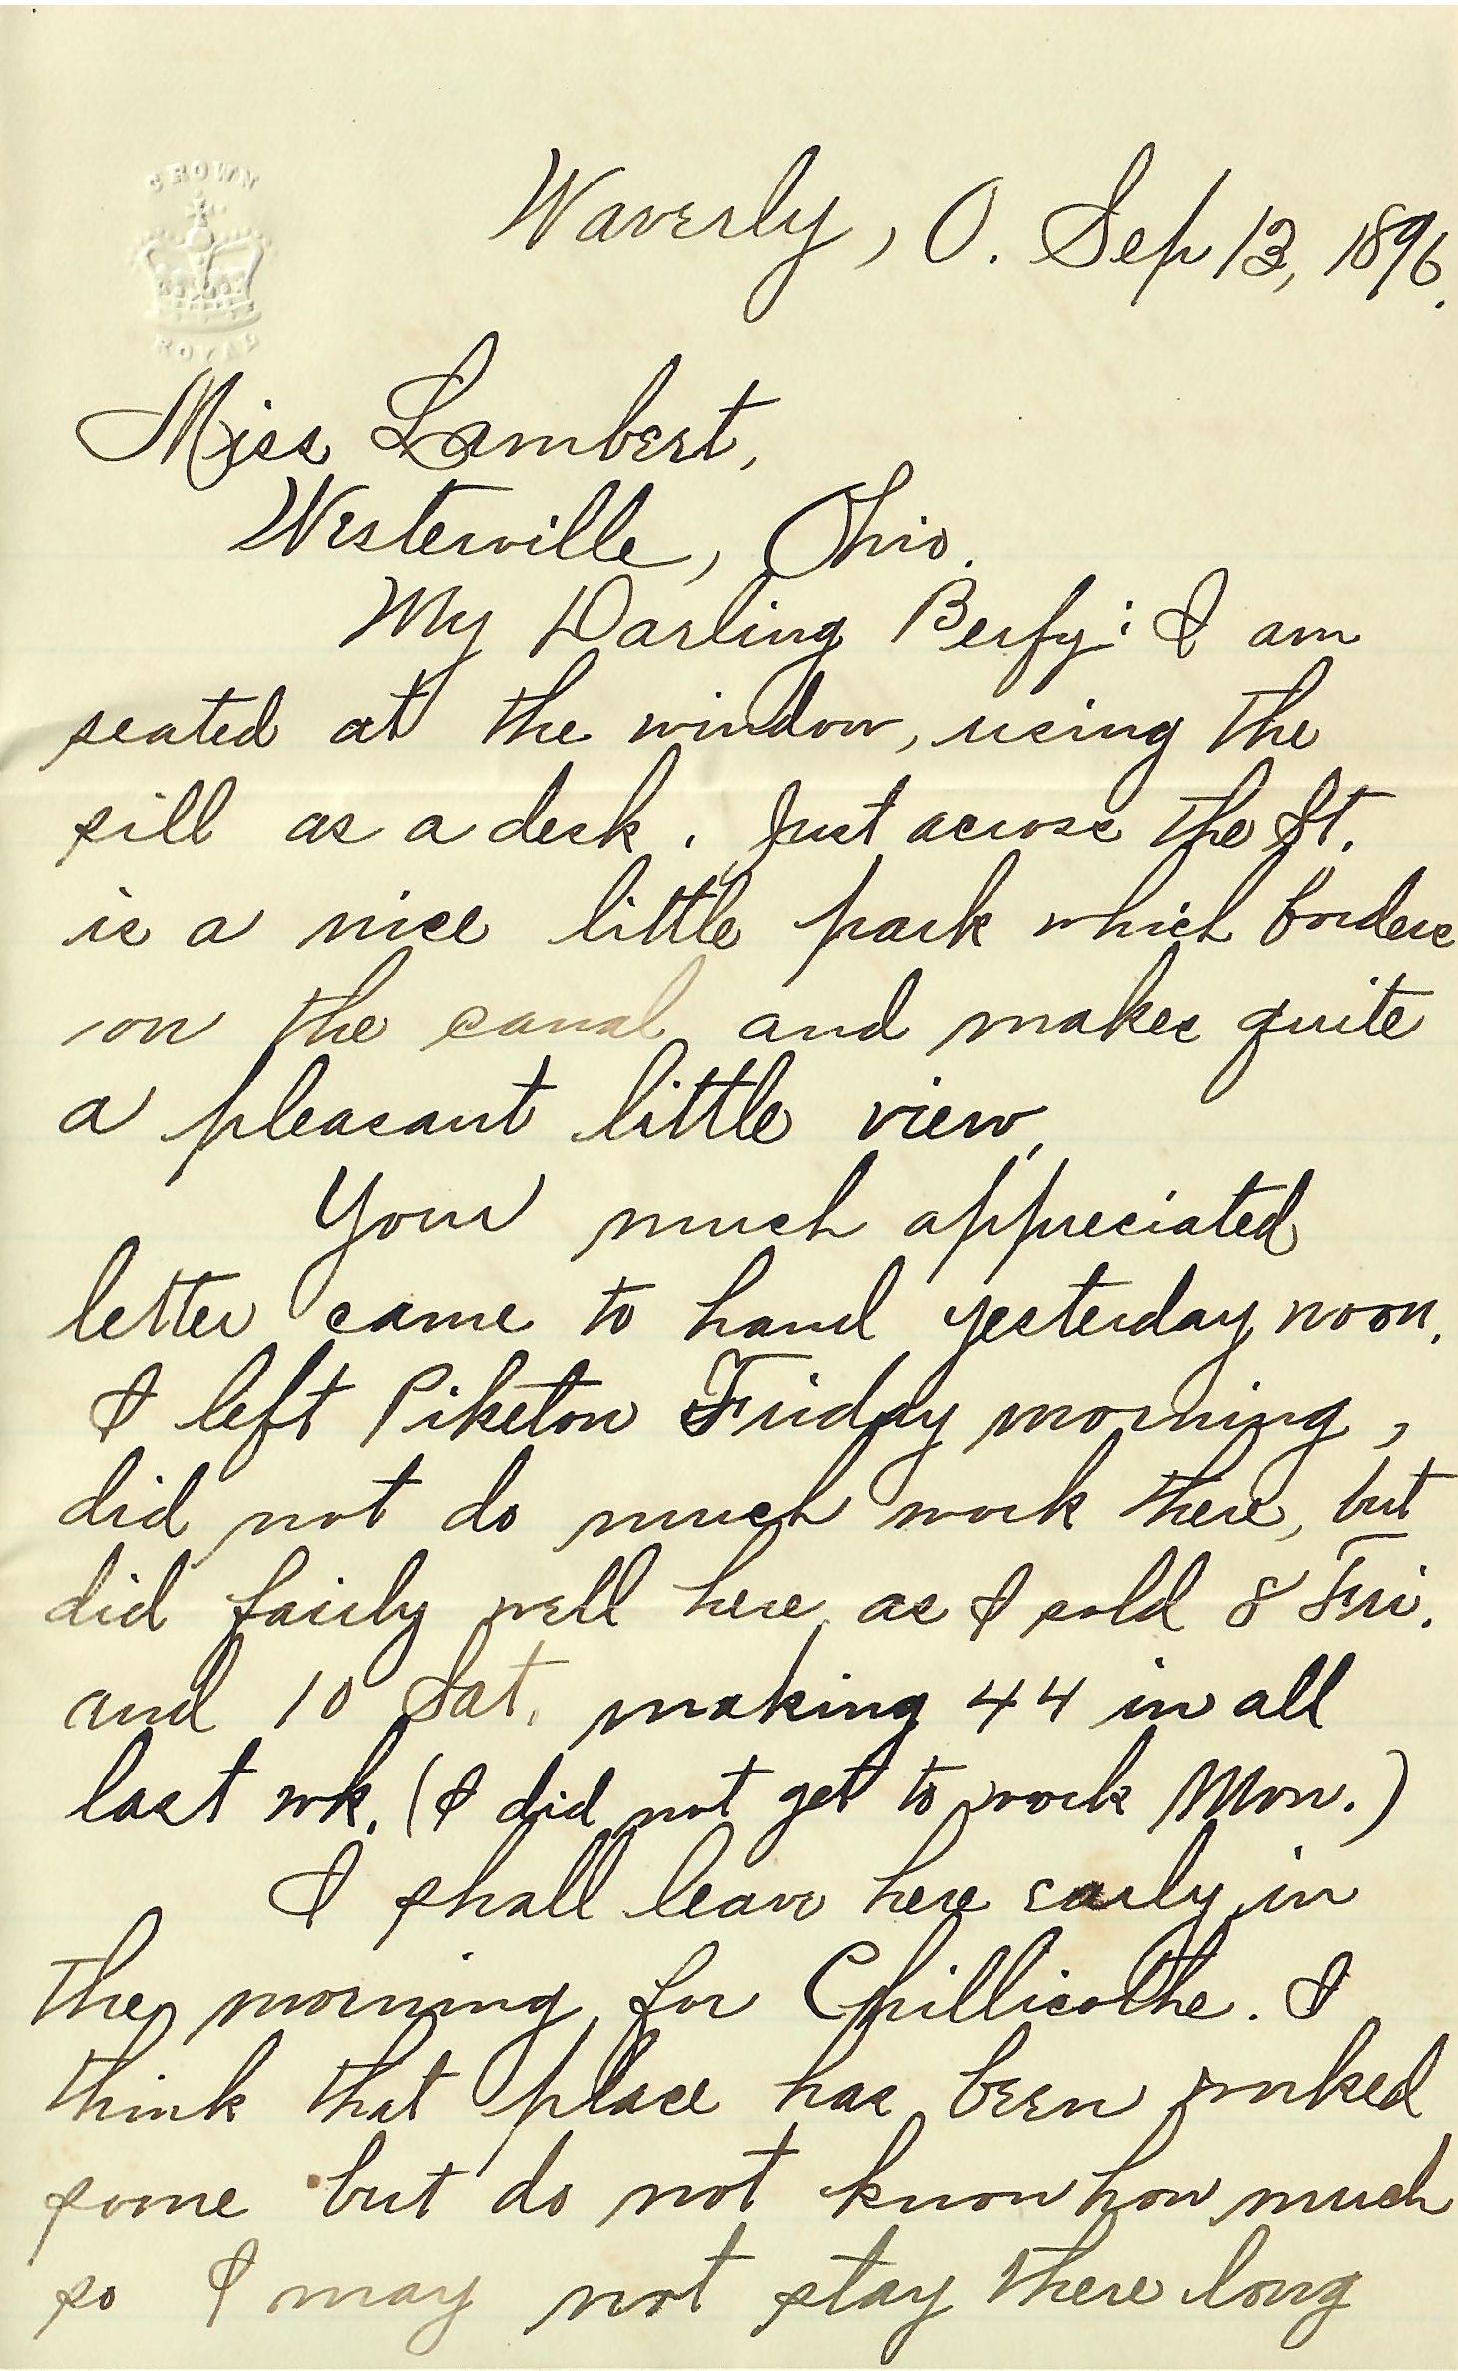 CROWN
ROYAL
Waverly, O. Sep 13, 1896.
Miss Lambert,
Westerville, Ohio.
My Darling : I am
seated at the window, using the
sill as a desk. Just across the St.
is a nice little park which borders
on the canal and makes quite
a pleasant little view.
Your much appreciated
letter came to hand yesterday noon.
I left Piketon Friday morning,
did not do much work there, but
did fairly well here as I sold 8 Fri.
and 10 Sat. making 44 in all
last wk. (I did not get to work Mon.)
I shall leave here early in
the morning for Chillicothe. I
think that place has been worked
some but do not know how much
so I may not stay there long